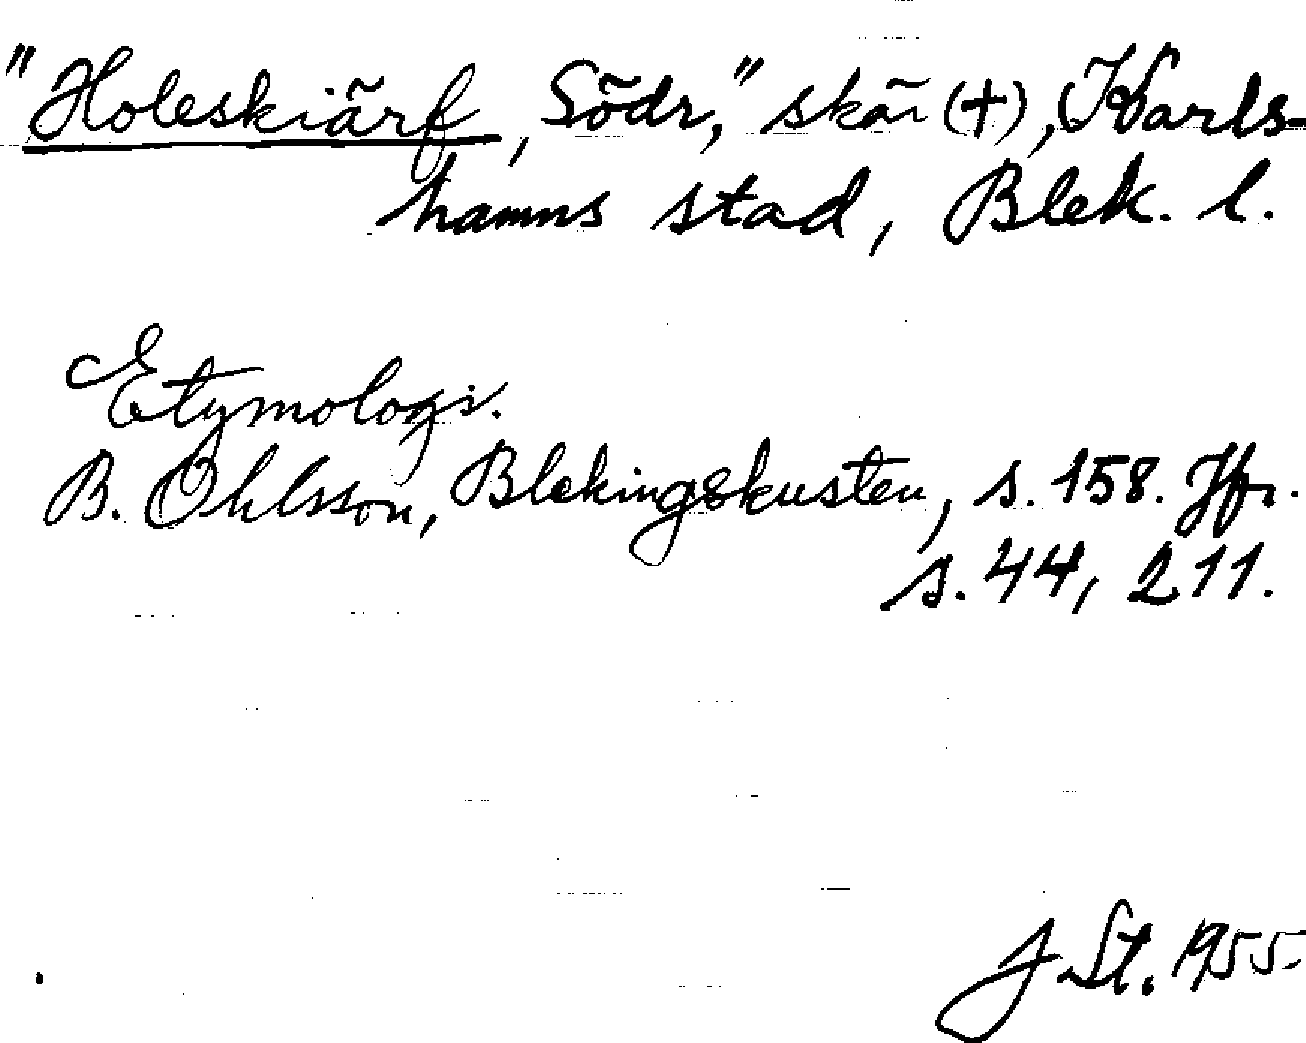 "Holeskiärf, Södr," skär (+), Karls-
hamns stad, Blek. l.
Etymologi.
B. Ohlsson, Blekingskusten, s. 158. Jfr.
s. 44, 211.
J St. 1955